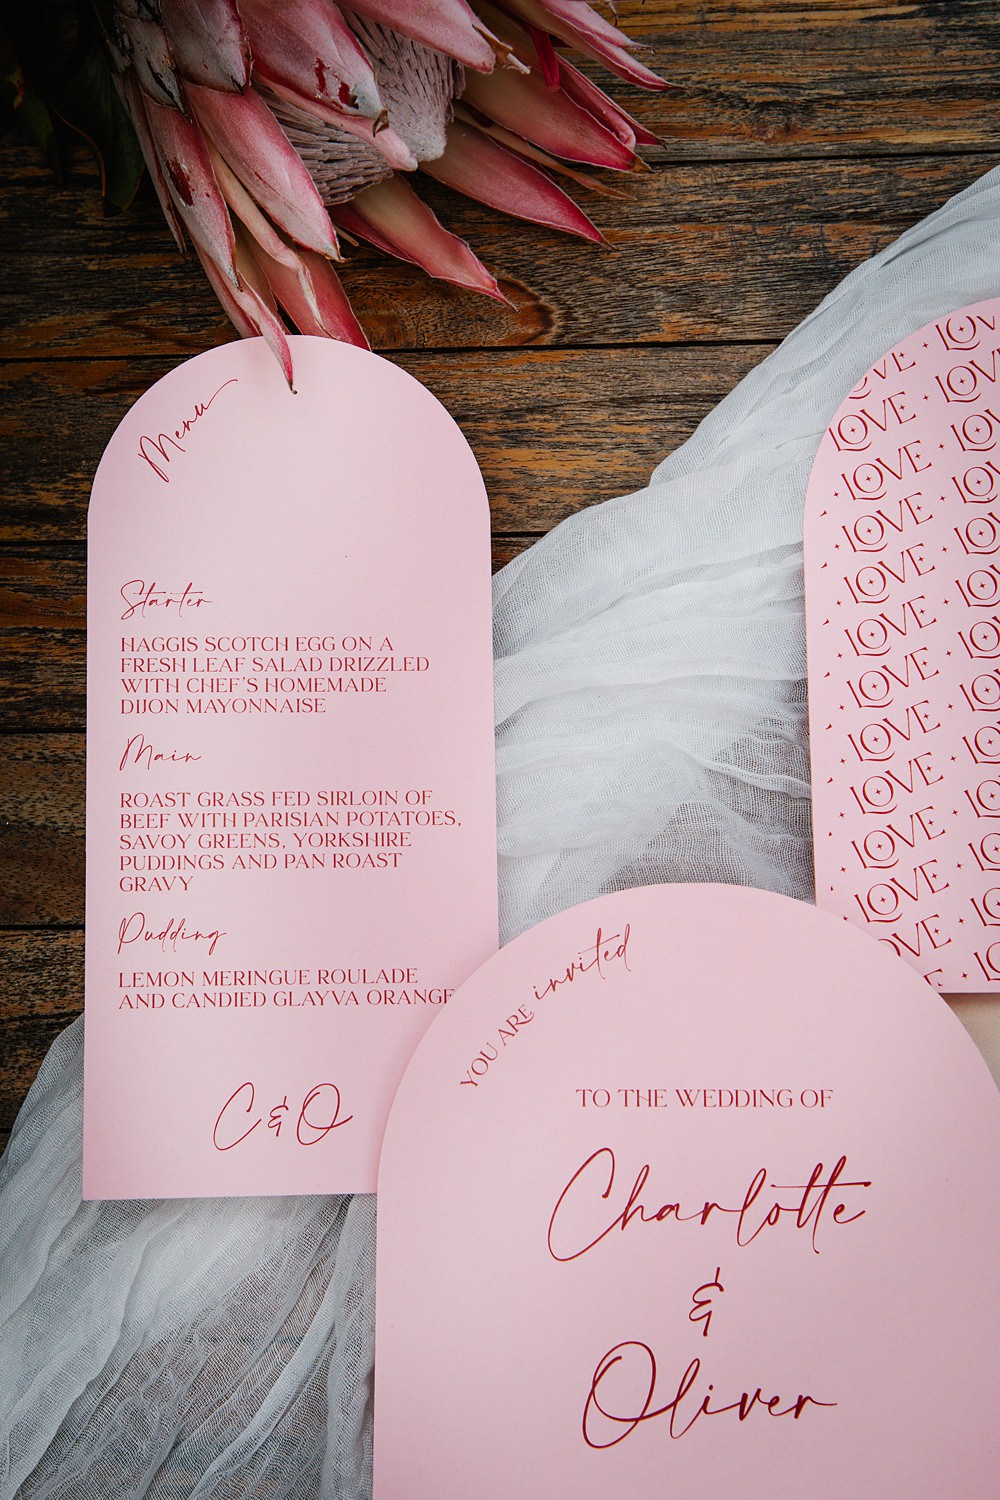 Menu
Starter
HAGGIS SCOTCH EGG ON A
FRESH LEAF SALAD DRIZZLED
WITH CHEF'S HOMEMADE
DIJON MAYONNAISE
Main
ROAST GRASS FED SIRLOIN OF
BEEF WITH PARISIAN POTATOES,
SAVOY GREENS, YORKSHIRE
PUDDINGS AND PAN ROAST
GRAVY
Pudding
LEMON MERINGUE ROULADE
AND CANDIED GLAYVA ORANGE
C & O
YOU ARE invited
TO THE WEDDING OF
Charlotte
&
Oliver
LOVE
LOVE
LOVE
LOVE
LOVE
LOVE
LOVE
LOVE
LOVE
LOVE
LOVE